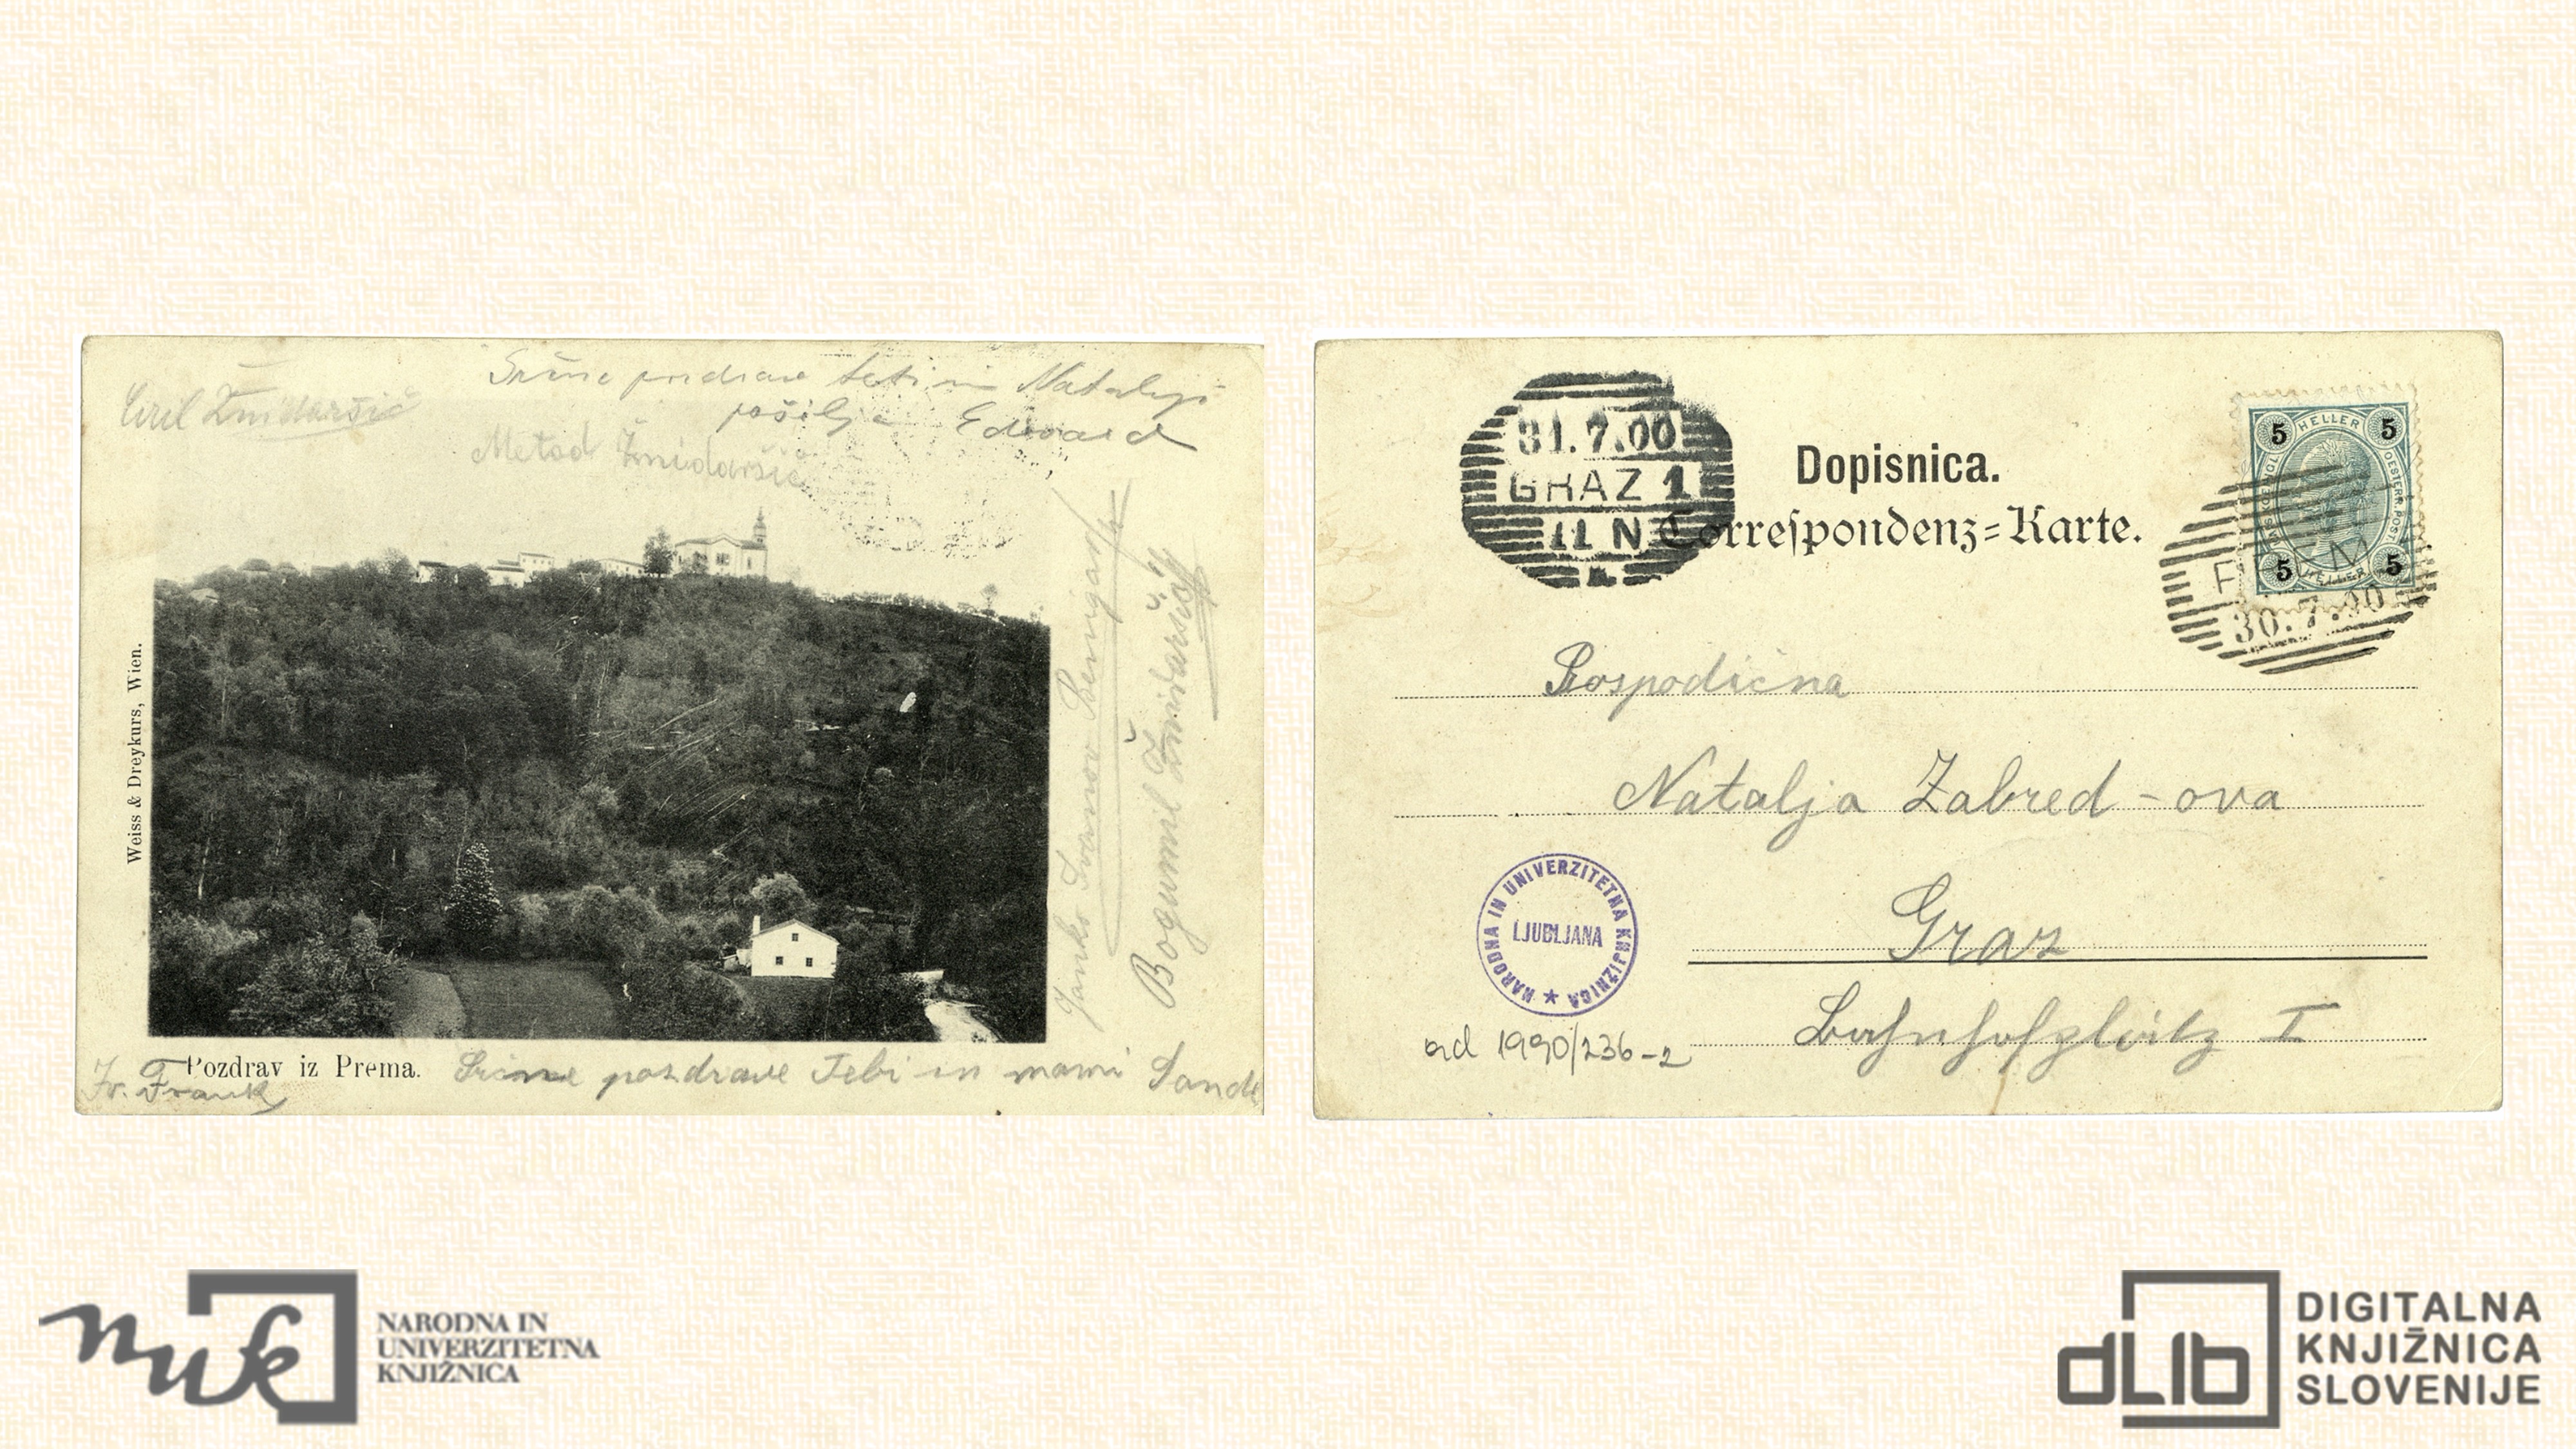 Srčne pozdrave teti in Nataliji
pošilja Edvard
Ciril Žnidaršič
Metod Žnidaršič
Weiss & Dreykurs, Wien.
Janko Ivanov
Bogumil Žnidaršič
Pozdrav iz Prema.
Srčne pozdrave Tebi in mami
Fr. Frank
31.7.00
GRAZ 1
11 N
Dopisnica.
Correſpondenz=Karte.
5 HELLER 5
OESTERR. POST
5 5
30.7.00
Gospodična
Natalja Zabred-ova
Graz
Bahnhofplatz I
NARODNA IN UNIVERZITETNA KNJIŽNICA ★
LJUBLJANA
ad 1990/236-2
nuk
NARODNA IN
UNIVERZITETNA
KNJIŽNICA
dLib
DIGITALNA
KNJIŽNICA
SLOVENIJE